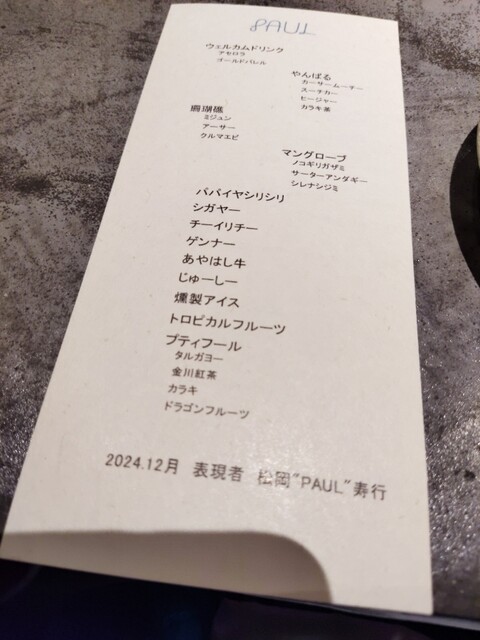 PAUL
ウェルカムドリンク
アセロラ
オールドバレル
やんばる
カーサームーチー
スーチカー
ヒージャー
カラキ茶
珊瑚礁
ミジュン
アーサー
クルマエビ
マングローブ
ノコギリガザミ
サーターアンダギー
シレナシジミ
パパイヤシリシリ
シガヤー
チーイリチー
ゲンナー
あやはし牛
じゅーしー
燻製アイス
トロピカルフルーツ
プティフール
タルガヨー
金川紅茶
カラキ
ドラゴンフルーツ
2024.12月 表現者 松岡"PAUL"寿行